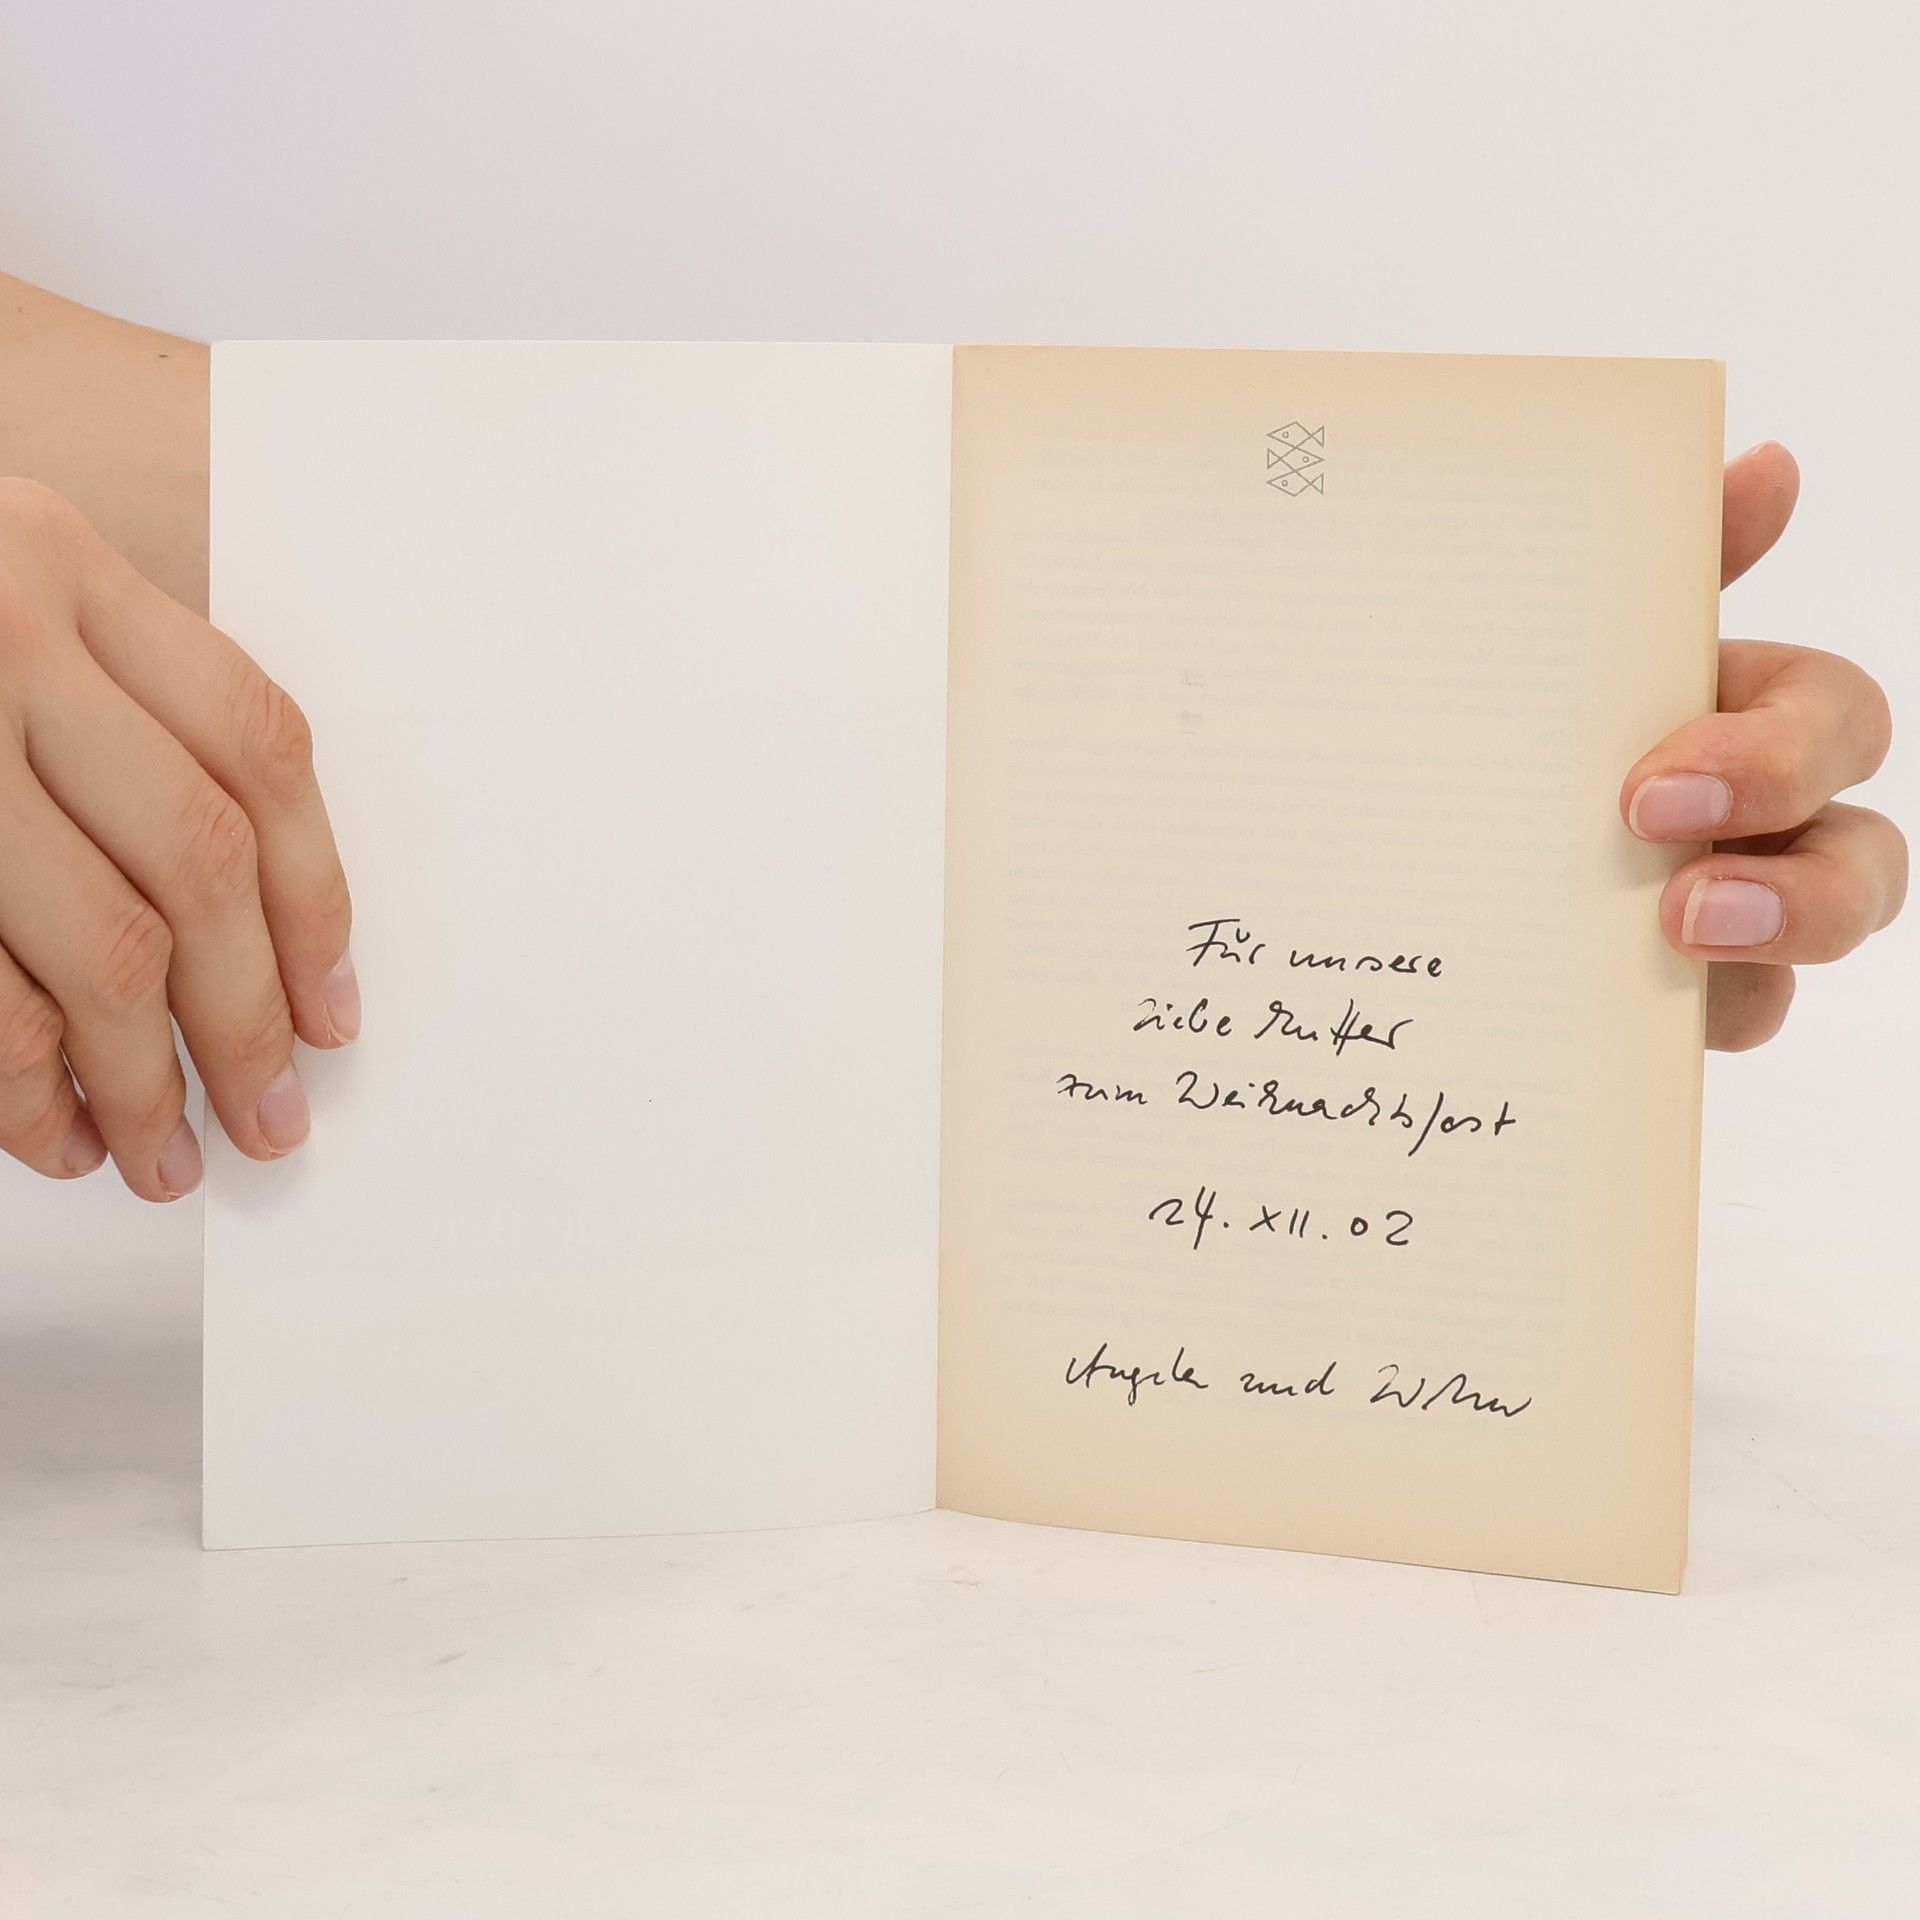 Für unsere
liebe Mutter
zum Weihnachtsfest
24. XII. 02
Angela und